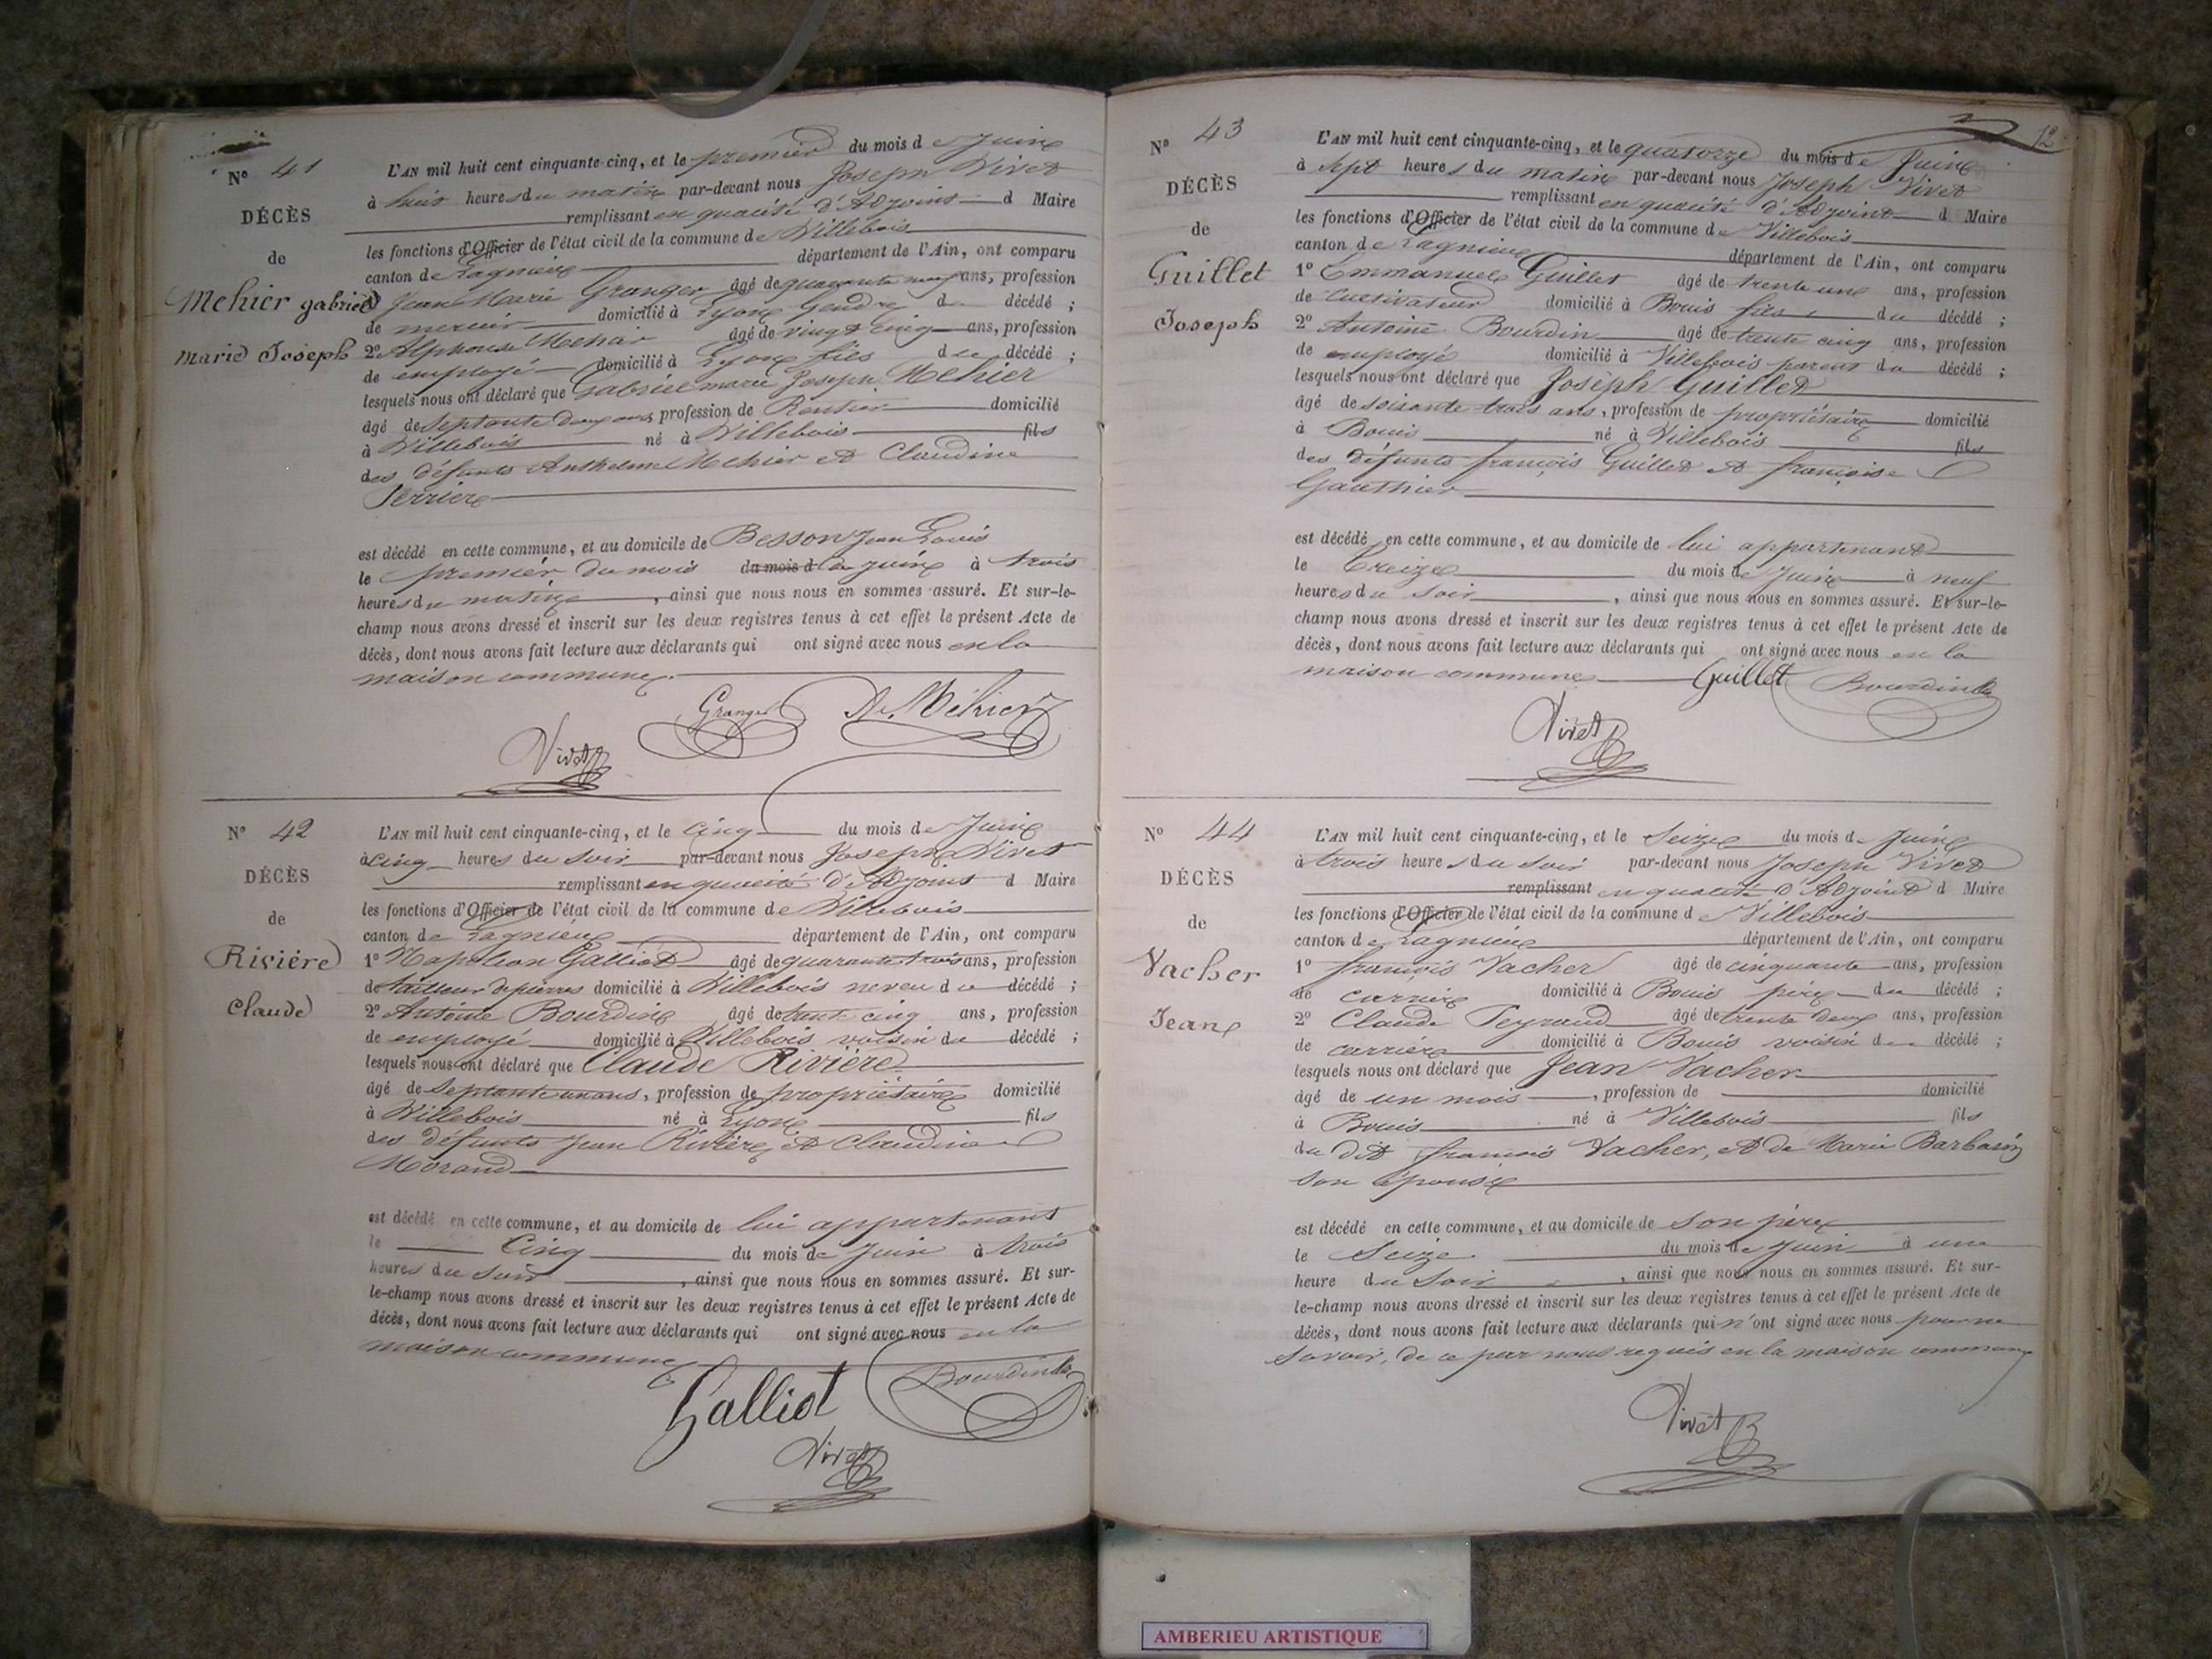 N° 41
DÉCÈS
de
Mehier gabriel
marie Joseph
L'AN mil huit cent cinquante-cinq, et le premier du mois de Juin
à huit heures du matin par-devant nous Joseph Vivet
remplissant en qualité d'Adjoint d Maire
les fonctions d'Officier de l'état civil de la commune de Villebois
canton de Lagnieu département de l'Ain, ont comparu
1° Jean Marie Granger âgé de quarante neuf ans, profession
de mercier domicilié à Lyon Gendre du décédé ;
2° Alphonse Mehier âgé de vingt cinq ans, profession
de employé domicilié à Lyon fils du décédé ;
lesquels nous ont déclaré que Gabriel marie Joseph Mehier
âgé de septante deux ans, profession de Rentier domicilié
à Villebois né à Villebois fils
des défunts Anthelme Mehier et Claudine
Perrier
est décédé en cette commune, et au domicile de Besson Jean Louis
le premier du mois du mois d de juin à trois
heures du matin, ainsi que nous nous en sommes assuré. Et sur-le-
champ nous avons dressé et inscrit sur les deux registres tenus à cet effet le présent Acte de
décès, dont nous avons fait lecture aux déclarants qui ont signé avec nous en la
maison commune.
Granger A. Méhier
Vivet
N° 42
DÉCÈS
de
Rivière
Claude
L'AN mil huit cent cinquante-cinq, et le cinq du mois de Juin
à cinq heures du soir par-devant nous Joseph Vivet
remplissant en qualité d'Adjoint d Maire
les fonctions d'Officier de l'état civil de la commune de Villebois
canton de Lagnieu département de l'Ain, ont comparu
1° Napoléon Galliot âgé de quarante trois ans, profession
de tailleur de pierres domicilié à Villebois neveu du décédé ;
2° Antoine Bourdin âgé de trente cinq ans, profession
de employé domicilié à Villebois voisin du décédé ;
lesquels nous ont déclaré que Claude Rivière
âgé de septante un ans, profession de propriétaire domicilié
à Villebois né à Lyon fils
des défunts Jean Rivière et Claudine
Morand
est décédé en cette commune, et au domicile de lui appartenant
le Cinq du mois de Juin à trois
heures du soir, ainsi que nous nous en sommes assuré. Et sur-
le-champ nous avons dressé et inscrit sur les deux registres tenus à cet effet le présent Acte de
décès, dont nous avons fait lecture aux déclarants qui ont signé avec nous en la
maison commune
Galliot Bourdin
Vivet
12
N° 43
DÉCÈS
de
Guillet
Joseph
L'AN mil huit cent cinquante-cinq, et le quatorze du mois de Juin
à sept heures du matin par-devant nous Joseph Vivet
remplissant en qualité d'Adjoint d Maire
les fonctions d'Officier de l'état civil de la commune de Villebois
canton de Lagnieu département de l'Ain, ont comparu
1° Emmanuel Guillet âgé de trente un ans, profession
de cultivateur domicilié à Bouis fils du décédé ;
2° Antoine Bourdin âgé de trente cinq ans, profession
de employé domicilié à Villebois parent du décédé ;
lesquels nous ont déclaré que Joseph Guillet
âgé de soixante-trois ans, profession de propriétaire domicilié
à Bouis né à Villebois fils
des défunts françois Guillet et françoise
Gauthier
est décédé en cette commune, et au domicile de lui appartenant
le Treize du mois de Juin à neuf
heures du soir, ainsi que nous nous en sommes assuré. Et sur-le-
champ nous avons dressé et inscrit sur les deux registres tenus à cet effet le présent Acte de
décès, dont nous avons fait lecture aux déclarants qui ont signé avec nous en la
maison commune Guillet Bourdin
Vivet
N° 44
DÉCÈS
de
Vacher
Jean
L'AN mil huit cent cinquante-cinq, et le Seize du mois de Juin
à trois heures du soir par-devant nous Joseph Vivet
remplissant en qualité d'Adjoint d Maire
les fonctions d'Officier de l'état civil de la commune de Villebois
canton de Lagnieu département de l'Ain, ont comparu
1° françois Vacher âgé de cinquante ans, profession
de carrier domicilié à Bouis père du décédé ;
2° Claude Peyraud âgé de trente deux ans, profession
de carrier domicilié à Bouis voisin du décédé ;
lesquels nous ont déclaré que Jean Vacher
âgé de un mois, profession de domicilié
à Bouis né à Villebois fils
du dit françois Vacher, et de Marie Barbarin
son épouse
est décédé en cette commune, et au domicile de son père
le Seize du mois de juin à une
heure du soir, ainsi que nous nous en sommes assuré. Et sur-
le-champ nous avons dressé et inscrit sur les deux registres tenus à cet effet le présent Acte de
décès, dont nous avons fait lecture aux déclarants qui n'ont signé avec nous pour ne
savoir, de ce par nous requis en la maison commune
Vivet
AMBERIEU ARTISTIQUE